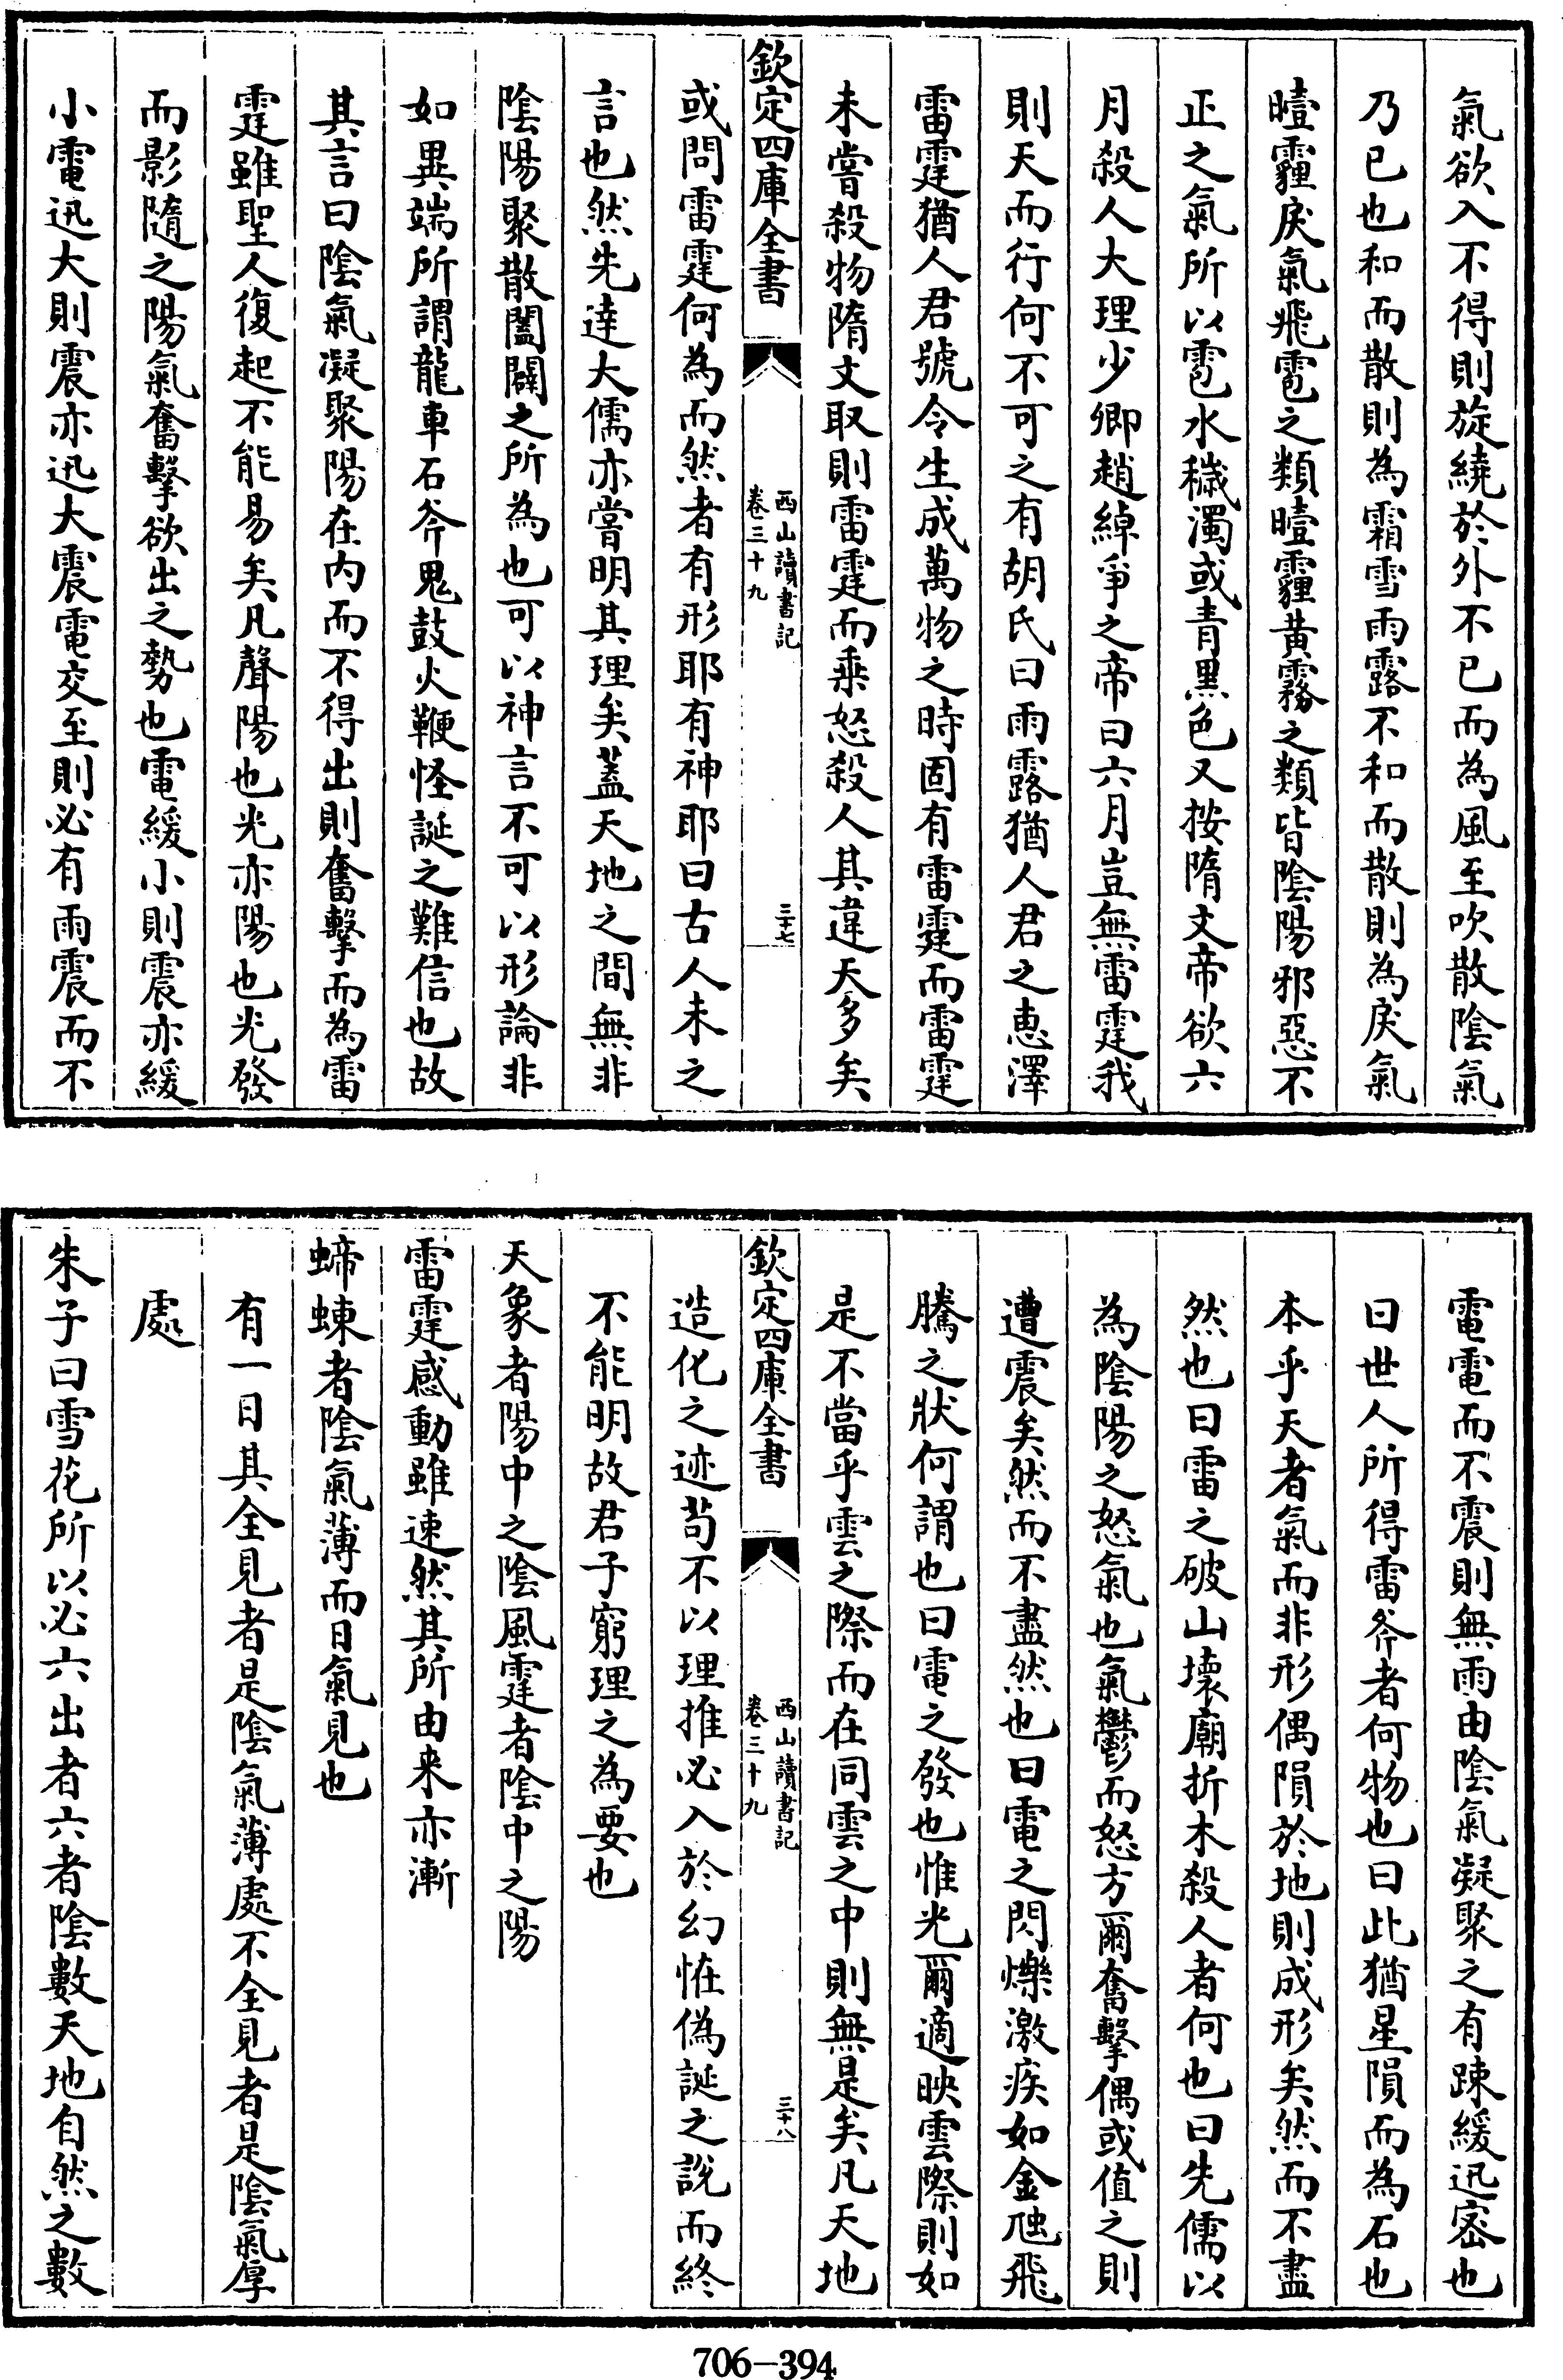 氣欲入不得則旋繞於外不已而為風至吹散陰氣
乃已也和而散則為霜雪雨露不和而散則為戾氣
曀霾戾氣飛雹之類曀霾黄霧之類皆陰陽邪惡不
正之氣所以雹水穢濁或青黑色又按隋文帝欲六
月殺人大理少卿趙綽爭之帝曰六月豈無雷霆我
則天而行何不可之有胡氏曰雨露猶人君之恵澤
雷霆猶人君號令生成萬物之時固有雷霆而雷霆
未嘗殺物隋文取則雷霆而乗怒殺人其違天多矣
欽定四庫全書
西山讀書記
卷三十九
三十七
或問雷霆何為而然者有形耶有神耶曰古人未之
言也然先達大儒亦嘗明其理矣蓋天地之間無非
陰陽聚散闔闢之所為也可以神言不可以形論非
如異端所謂龍車石斧鬼鼓火鞭怪誕之難信也故
其言曰陰氣凝聚陽在内而不得出則奮擊而為雷
霆雖聖人復起不能易矣凡聲陽也光亦陽也光發
而影隨之陽氣奮擊欲出之勢也電緩小則震亦緩
小電迅大則震亦迅大震電交至則必有雨震而不
電電而不震則無雨由陰氣凝聚之有踈緩迅密也
曰世人所得雷斧者何物也曰此猶星隕而為石也
本乎天者氣而非形偶隕於地則成形矣然而不盡
然也曰雷之破山壊廟折木殺人者何也曰先儒以
為陰陽之怒氣也氣鬱而怒方爾奮擊偶或值之則
遭震矣然而不盡然也曰電之閃爍激疾如金虵飛
騰之狀何謂也曰電之發也惟光爾適映雲際則如
是不當乎雲之際而在同雲之中則無是矣凡天地
欽定四庫全書
西山讀書記
卷三十九
三十八
造化之迹茍不以理推必入於幻恠偽誕之說而終
不能明故君子窮理之為要也
天象者陽中之陰風霆者陰中之陽
雷霆感動雖速然其所由来亦漸
蝃蝀者陰氣薄而日氣見也
有一日其全見者是陰氣薄處不全見者是陰氣厚
處
朱子曰雪花所以必六出者六者陰數天地自然之數
706-394